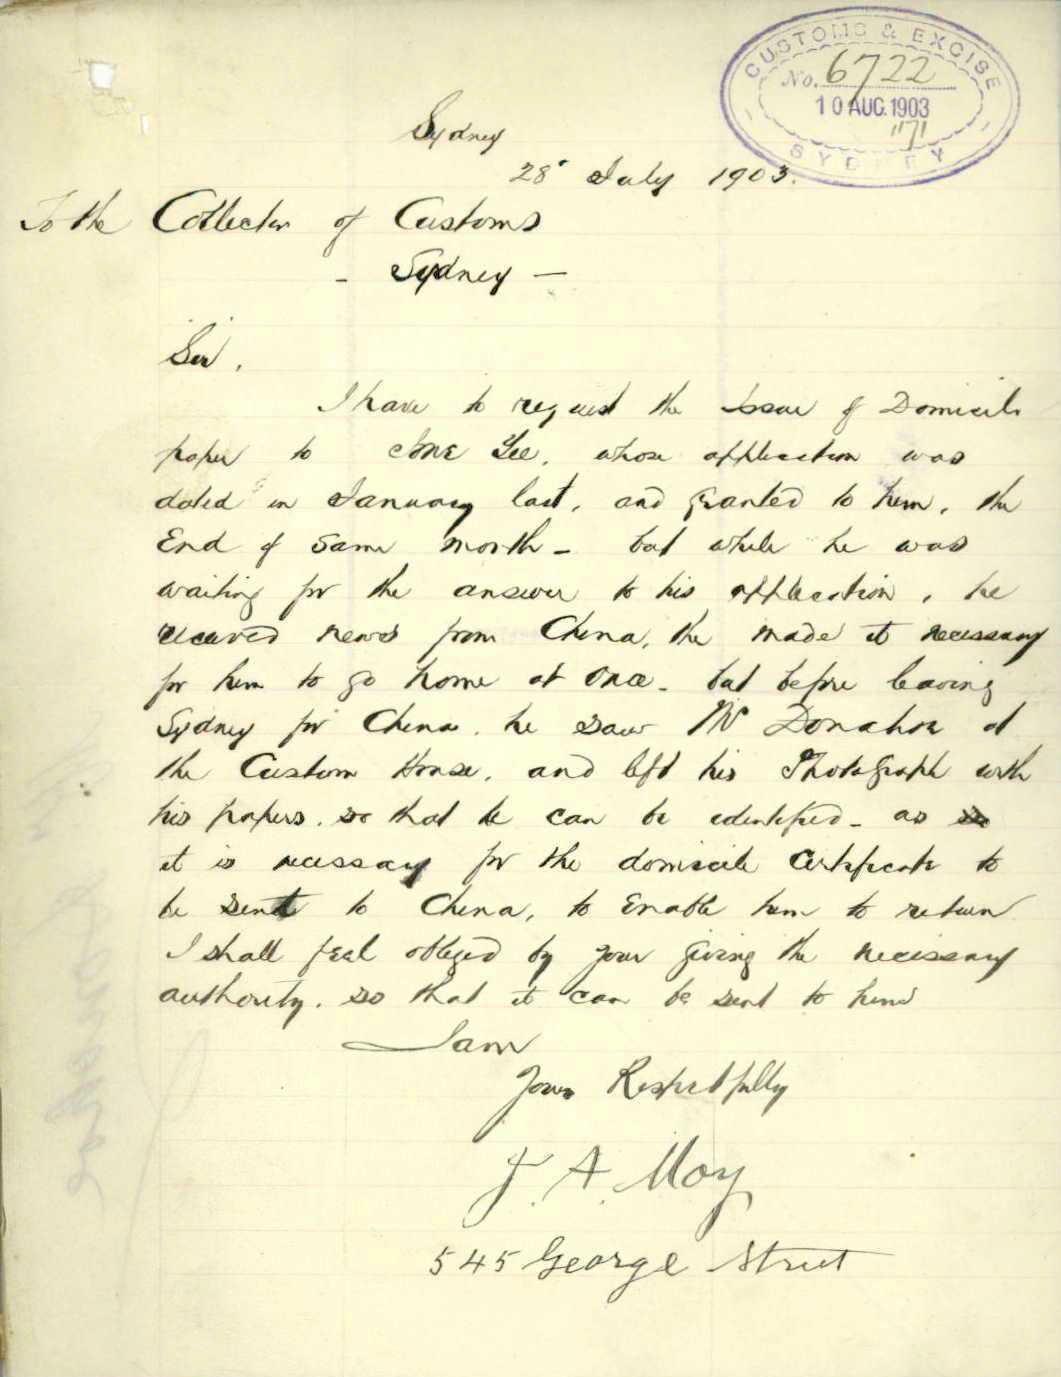 CUSTOMS & EXCISE
No. 6722
10 AUG. 1903
"7"
SYDNEY
Sydney
28 July 1903.
To the Collector of Customs
- Sydney -
Sir,
I have to request the Issue of Domicile
paper to Yee, whose application was
dated in January last, and granted to him, the
End of same month - but while he was
waiting for the answer to his application, he
received news from China, the made it necessary
for him to go home at once - but before leaving
Sydney for China, he saw Mr Donahoe at
the Custom House, and left his Photograph with
his papers, so that he can be identified - as so
it is necessay for the domicile Certificate to
be sent to China, to Enable him to return
I shall feel obliged by your giving the necessary
authority, so that it can be sent to him
I am
Yours Respectfully
J. A. Moy
545 George Street